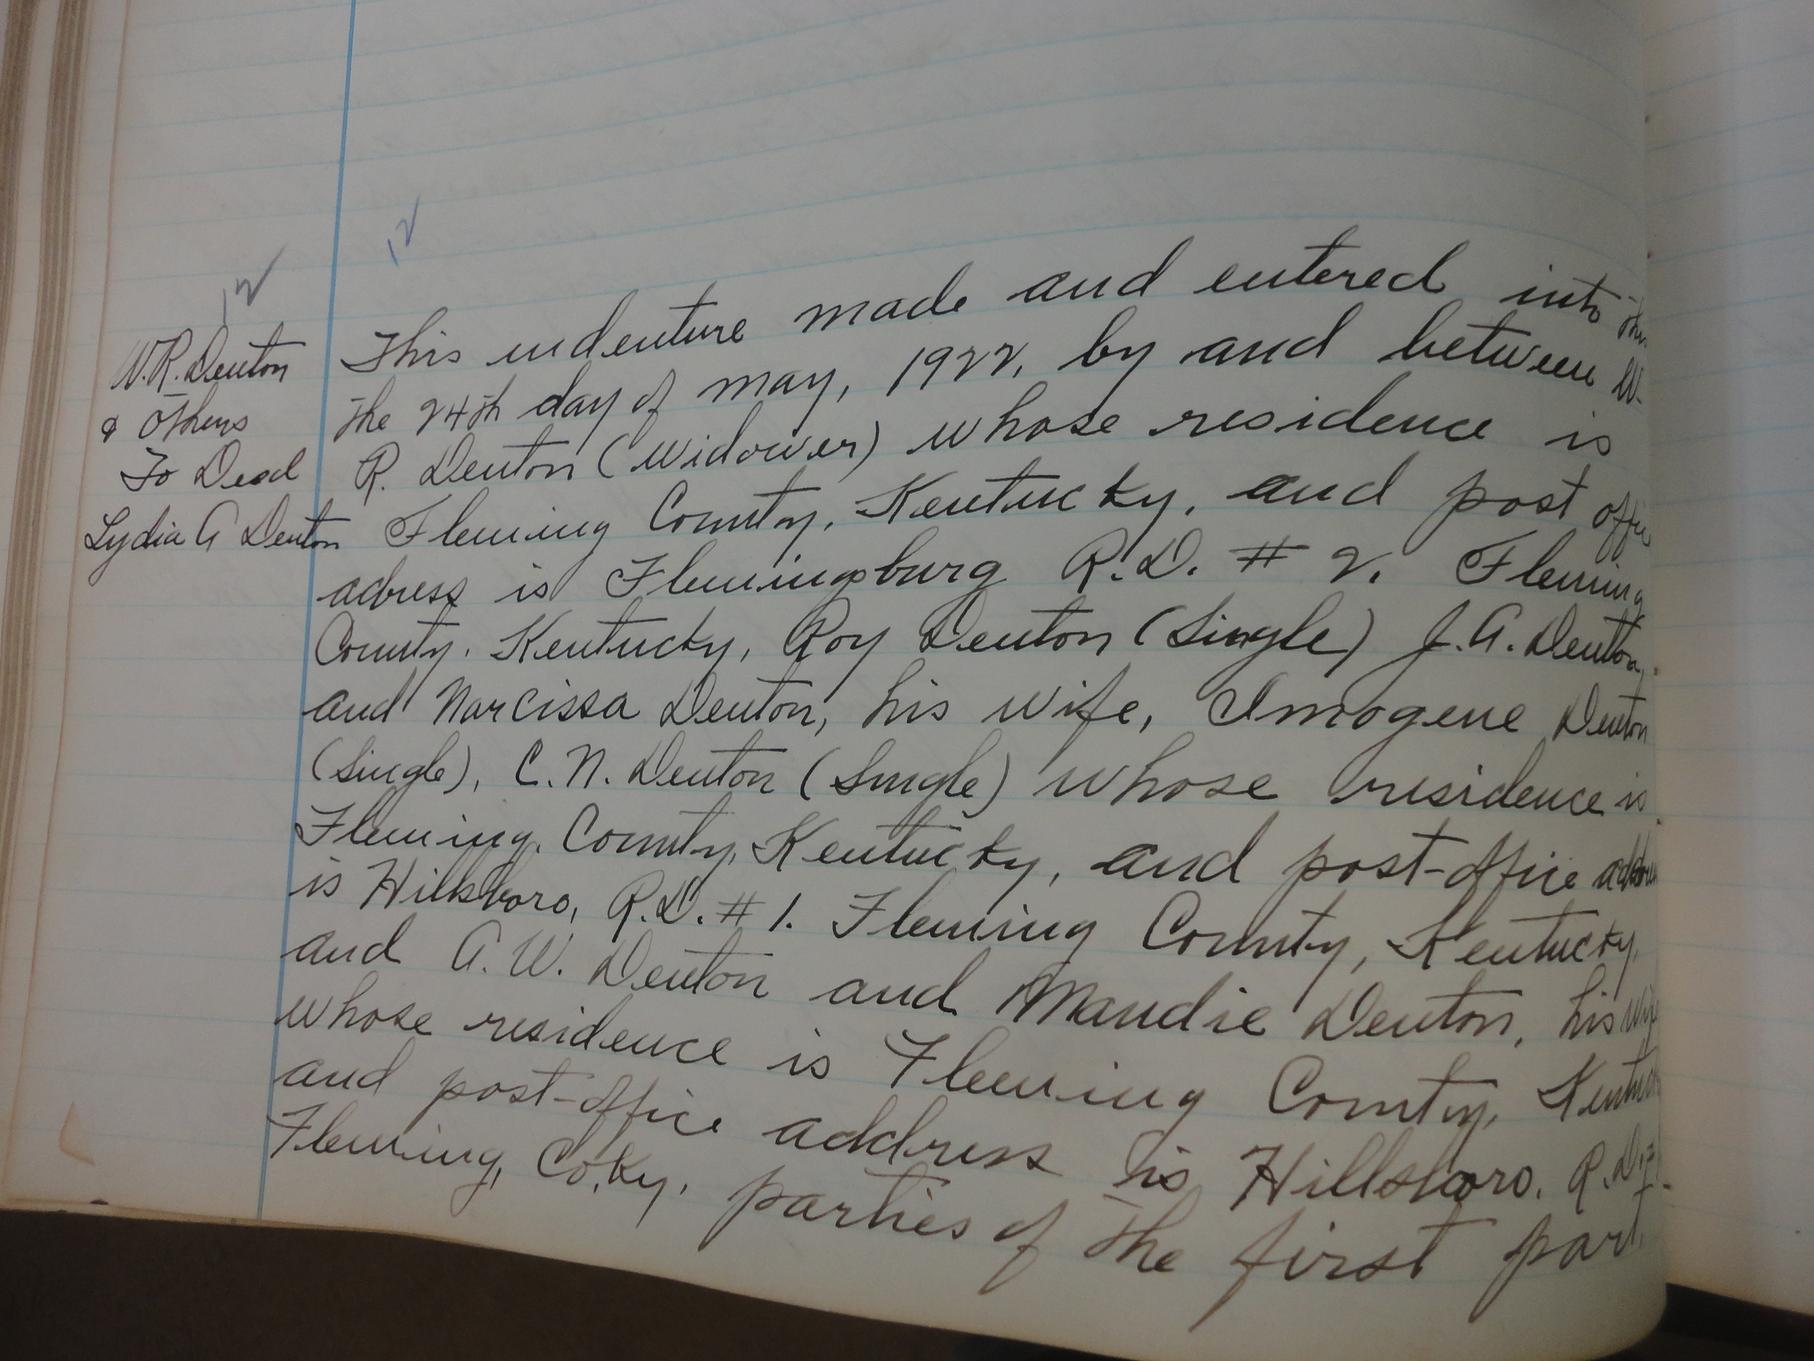 12
12
W.R. Denton
& Others
To Deed
Lydia A Denton
This indenture made and entered into this
the 24th day of may, 1922, by and between W.
R. Denton (Widower) whose residence is
Fleming County, Kentucky, and post office
adress is Flemingsburg R.D. # 2. Fleming
County. Kentucky, Roy Denton (Single) J.A. Denton,
and Narcissa Denton, his wife, Imogene Denton
(Single), C.N. Denton (Single) whose residence is
Fleming, County, Kentucky, and post-office address
is Hillsboro, R.D. # 1. Fleming County, Kentucky,
and A.W. Denton and Maudie Denton, his wife
whose residence is Fleming County, Kentucky
and post-office address is Hillsboro, R.D.
Fleming, Co. Ky, parties of the first part.